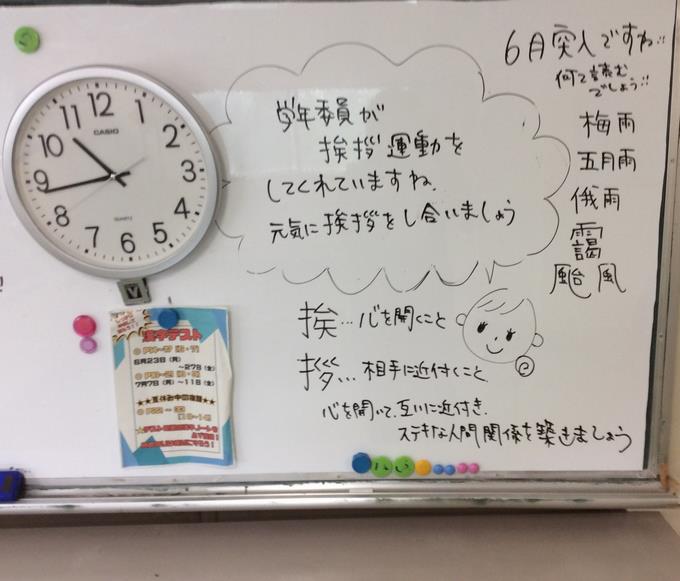 12
1
2
3
4
5
6
7
8
9
10
11
CASIO
QUARTZ
学年委員が
挨拶運動を
してくれていますね。
元気に挨拶をし合いましょう
6月突入ですね!!
何て読む
でしょう!!
梅雨
五月雨
俄雨
靄
颱風
挨…心を開くこと
拶…相手に近付くこと
心を開いて、互いに近付き、
ステキな人間関係を築きましょう
漢字テスト
6月23日(月)
~27日(金)
7月7日(月)~11日(金)